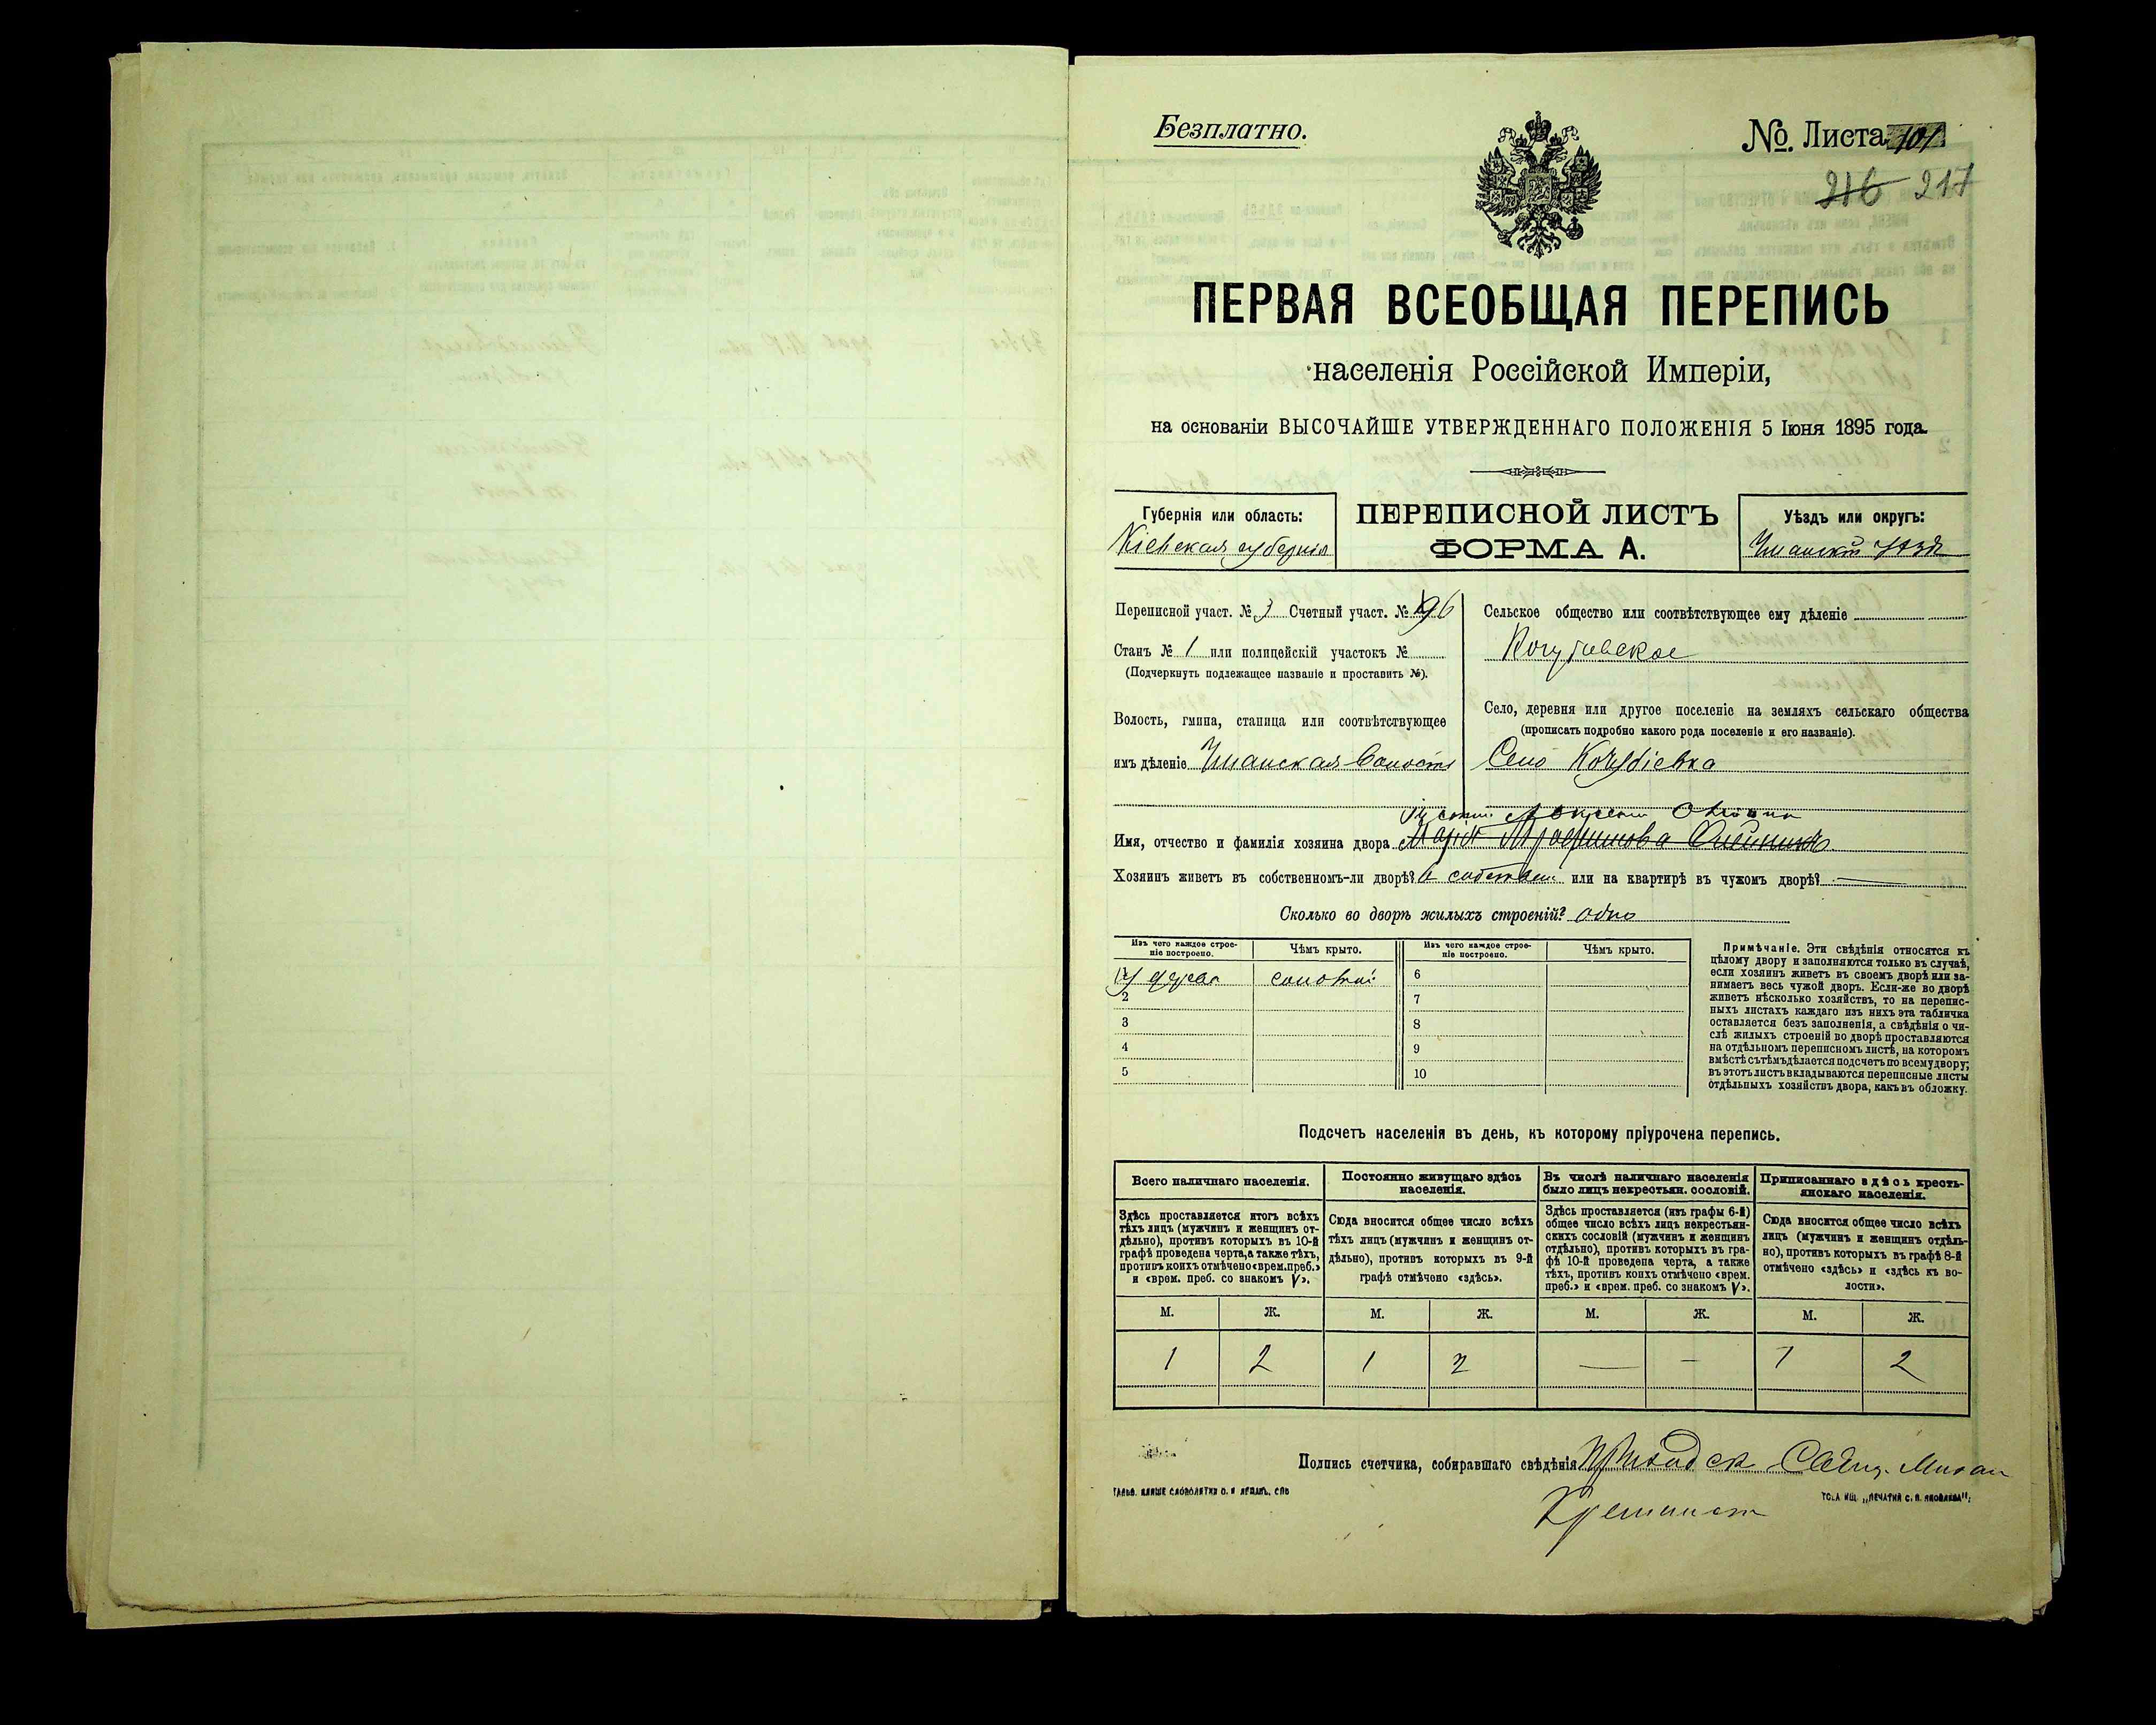 Безплатно.
№. Листа 101
216 217
ПЕРВАЯ ВСЕОБЩАЯ ПЕРЕПИСЬ
населенія Россійской Имперіи,
на основаніи ВЫСОЧАЙШЕ УТВЕРЖДЕННАГО ПОЛОЖЕНІЯ 5 Іюня 1895 года.
Губернія или область:
Кіевская губернія
ПЕРЕПИСНОЙ ЛИСТЪ
ФОРМА А.
Уѣздъ или округъ:
Уманскій уѣздъ
Переписной участ. № 3 Счетный участ. № 96
Станъ № 1 или полицейскій участокъ №
(Подчеркнуть подлежащее названіе и проставить №).
Волость, гмина, станица или соотвѣтствующее
имъ дѣленіе Уманская волость
Сельское общество или соотвѣтствующее ему дѣленіе
Кочубіевское
Село, деревня или другое поселеніе на земляхъ сельскаго общества
(прописать подробно какого рода поселеніе и его названіе).
Село Кочубіевка
Имя, отчество и фамилія хозяина двора Марія Трофимова Олейникъ
Хозяинъ живетъ въ собственномъ-ли дворѣ? въ собствен или на квартирѣ въ чужомъ дворѣ? —
Сколько во дворѣ жилыхъ строеній? одно
Изъ чего каждое строе-
ніе построено.
Чѣмъ крыто.
Изъ чего каждое строе-
ніе построено.
Чѣмъ крыто.
1 дерева соломой 6
2 7
3 8
4 9
5 10
Примѣчаніе. Эти свѣдѣнія относятся къ
цѣлому двору и заполняются только въ случаѣ,
если хозяинъ живетъ въ своемъ дворѣ или за-
нимаетъ весь чужой дворъ. Если-же во дворѣ
живетъ нѣсколько хозяйствъ, то на перепис-
ныхъ листахъ каждаго изъ нихъ эта табличка
оставляется безъ заполненія, а свѣдѣнія о чи-
слѣ жилыхъ строеній во дворѣ проставляются
на отдѣльномъ переписномъ листѣ, на которомъ
вмѣстѣ съ тѣмъ дѣлается подсчетъ по всему двору;
въ этотъ листъ вкладываются переписные листы
отдѣльныхъ хозяйствъ двора, какъ въ обложку.
Подсчетъ населенія въ день, къ которому пріурочена перепись.
Всего наличнаго населенія.
Здѣсь проставляется итогъ всѣхъ
тѣхъ лицъ (мужчинъ и женщинъ от-
дѣльно), противъ которыхъ въ 10-й
графѣ проведена черта, а также тѣхъ,
противъ коихъ отмѣчено «врем. преб.»
и «врем. преб. со знакомъ V».
Постоянно живущаго здѣсь
населенія.
Сюда вносится общее число всѣхъ
тѣхъ лицъ (мужчинъ и женщинъ от-
дѣльно), противъ которыхъ въ 9-й
графѣ отмѣчено «здѣсь».
Въ числѣ наличнаго населенія
было лицъ некрестьян. сословій.
Здѣсь проставляется (изъ графы 6-й)
общее число всѣхъ лицъ некрестьян-
скихъ сословій (мужчинъ и женщинъ
отдѣльно), противъ которыхъ въ гра-
фѣ 10-й проведена черта, а также
тѣхъ, противъ коихъ отмѣчено «врем.
преб.» и «врем. преб. со знакомъ V».
Приписаннаго здѣсь кресть-
янскаго населенія.
Сюда вносится общее число всѣхъ
лицъ (мужчинъ и женщинъ отдѣль-
но), противъ которыхъ въ графѣ 8-й
отмѣчено «здѣсь» и «здѣсь къ во-
лости».
М. Ж. М. Ж. М. Ж. М. Ж.
1 2 1 2 — — 1 2
Подпись счетчика, собиравшаго свѣдѣнія